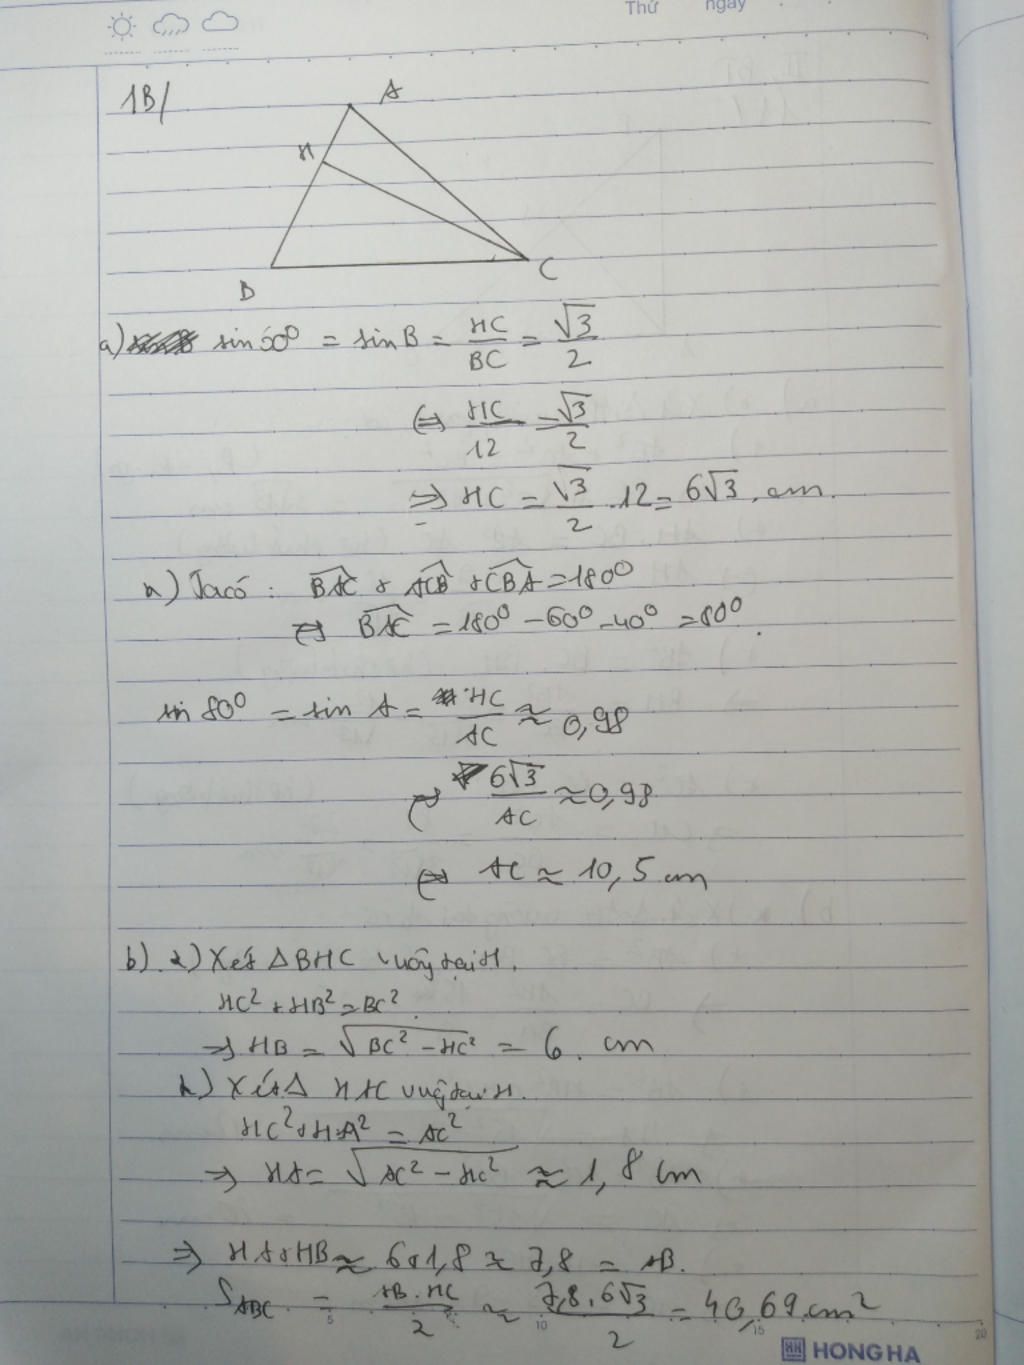 Thứ ngày
1B/
A
H
B
C
a) sin 60⁰ = sin B = HC/BC = √3/2
⇔ HC/12 = √3/2
⇒ HC = √3/2 . 12 = 6√3 . cm.
+) Ta có : BAC + ACB + CBA = 180⁰
⇔ BAC = 180⁰ - 60⁰ - 40⁰ = 80⁰.
sin 80⁰ = sin A = HC/AC ≈ 0,98
⇔ 6√3/AC ≈ 0,98
⇔ AC ≈ 10,5 cm
b) +) Xét ΔBHC vuông tại H.
HC² + HB² = BC².
⇒ HB = √BC² - HC² = 6. cm
+) Xét Δ HAC vuông tại H.
HC² + HA² = AC²
⇒ HA = √AC² - HC² ≈ 1,8 cm
⇒ HA + HB ≈ 6 + 1,8 ≈ 7,8 = AB.
S ABC = AB . HC/2 ≈ 7,8 . 6√3/2 = 40,69 cm²
5 10 15 20
HONG HA